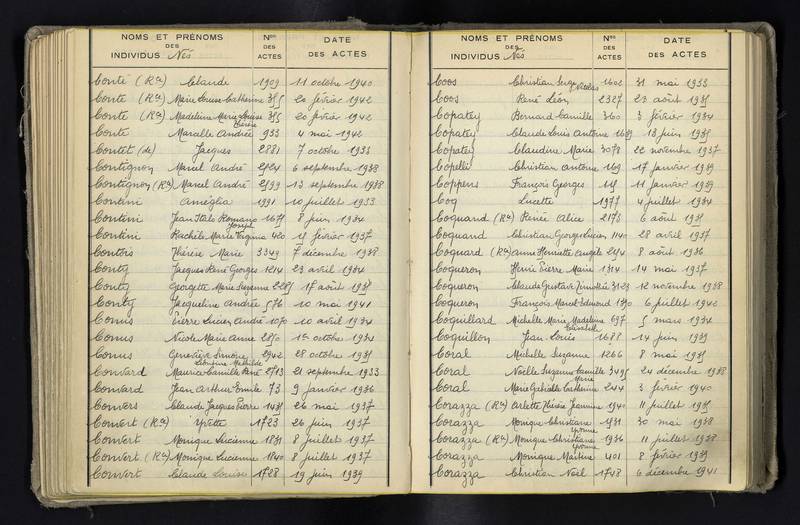 NOMS ET PRÉNOMS DES INDIVIDUS Nés NOS DES ACTES DATE DES ACTES
Conte (Rce) Claude 1909 11 octobre 1940
Conte (Rce) Marie Louise Catherine 355 20 février 1942
Conte (Rce) Madeleine Marie Louise 355 20 février 1942
Conte Maralle Andrée 933 4 mai 1942
Contet (de) Jacques 2881 7 octobre 1933
Contignon Marcel André 2524 6 septembre 1938
Contignon (Rce) Marcel André 2599 13 septembre 1938
Contini Améglia 1991 10 juillet 1933
Contini Jean Italo Romano Joseph 1671 8 juin 1934
Contini Rachèle Marie Virginia 420 15 février 1937
Contois Thérèse Marie 3349 7 décembre 1938
Conty Jacques René Georges 1214 23 avril 1934
Conty Georgette Marie Suzanne 2285 17 août 1935
Conty Jacqueline Andrée 576 10 mai 1941
Conus Pierre Lucien André 1070 10 avril 1934
Conus Nicole Marie Anne 2850 1er octobre 1934
Conus Geneviève Simone 2942 28 octobre 1935
Convard Maurice Camille René 2713 21 septembre 1933
Convard Jean Arthur Emile 73 9 janvier 1936
Convers Claude Jacques Pierre 1435 26 mai 1937
Convert (Rce) Yvette 1723 26 juin 1937
Convert Monique Lucienne 1831 8 juillet 1937
Convert (Rce) Monique Lucienne 1840 8 juillet 1937
Convert Claude Louise 1728 19 juin 1939
NOMS ET PRÉNOMS DES INDIVIDUS Nés NOS DES ACTES DATE DES ACTES
Coos Christian Serge Nicolas 1602 31 mai 1933
Coos René Léon 2327 23 août 1935
Copatey Bernard Camille 360 3 février 1934
Copatey Claude Louis Antoine 1639 13 juin 1935
Copatey Claudine Marie 3078 22 novembre 1937
Copelli Christian Antoine 169 17 janvier 1939
Coppens François Georges 115 11 janvier 1939
Coq Lucette 1977 4 juillet 1934
Coquand (Rce) Renée Alice 2173 6 août 1935
Coquand Christian Georges Lucien 1140 28 avril 1937
Coquard (Rce) Anne Henriette Angèle 2254 8 août 1936
Coqueron Henri Pierre Marie 1314 14 mai 1937
Coqueron Claude Gustave Timothée 3129 12 novembre 1938
Coqueron François Marcel Edmond 1390 6 juillet 1942
Coquillard Michelle Marie Madeleine Elisabeth 697 5 mars 1934
Coquillon Jean Louis 1688 14 juin 1939
Coral Michelle Suzanne 1266 8 mai 1935
Coral Noëlle Suzanne Camille 3495 24 décembre 1938
Coral Marie Gabrielle Catherine 244 3 février 1940
Corazza (Rce) Arlette Thérèse Jeannine 1940 11 juillet 1935
Corazza Monique Christiane Yvonne 1531 30 mai 1938
Corazza (Rce) Monique Christiane Yvonne 1936 11 juillet 1938
Corazza Monique Martine 401 8 février 1939
Corazza Christian Noël 1748 6 décembre 1941